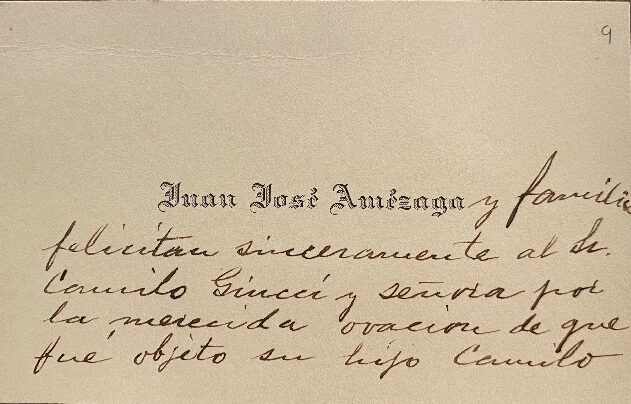 9
Juan José Amézaga y familia
felicitan sinceramente al Sr.
Camilo Giucci y señora por
la merecida ovación de que
fué objeto su hijo Camilo